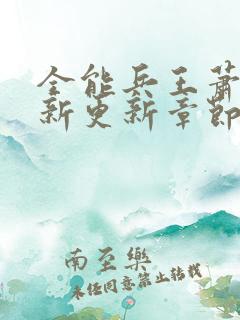 全能兵王萧
新更新章节
南至乐
未经同意禁止转载